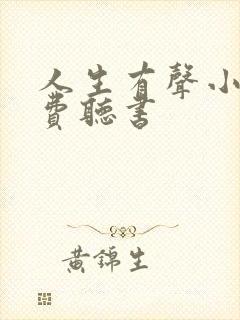 人生有聲小
費聽書
黃錦生